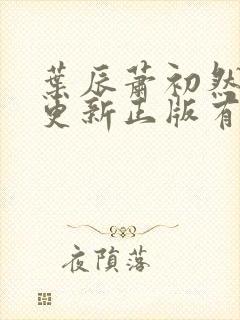 葉辰蕭初然
更新正版有
夜隕落